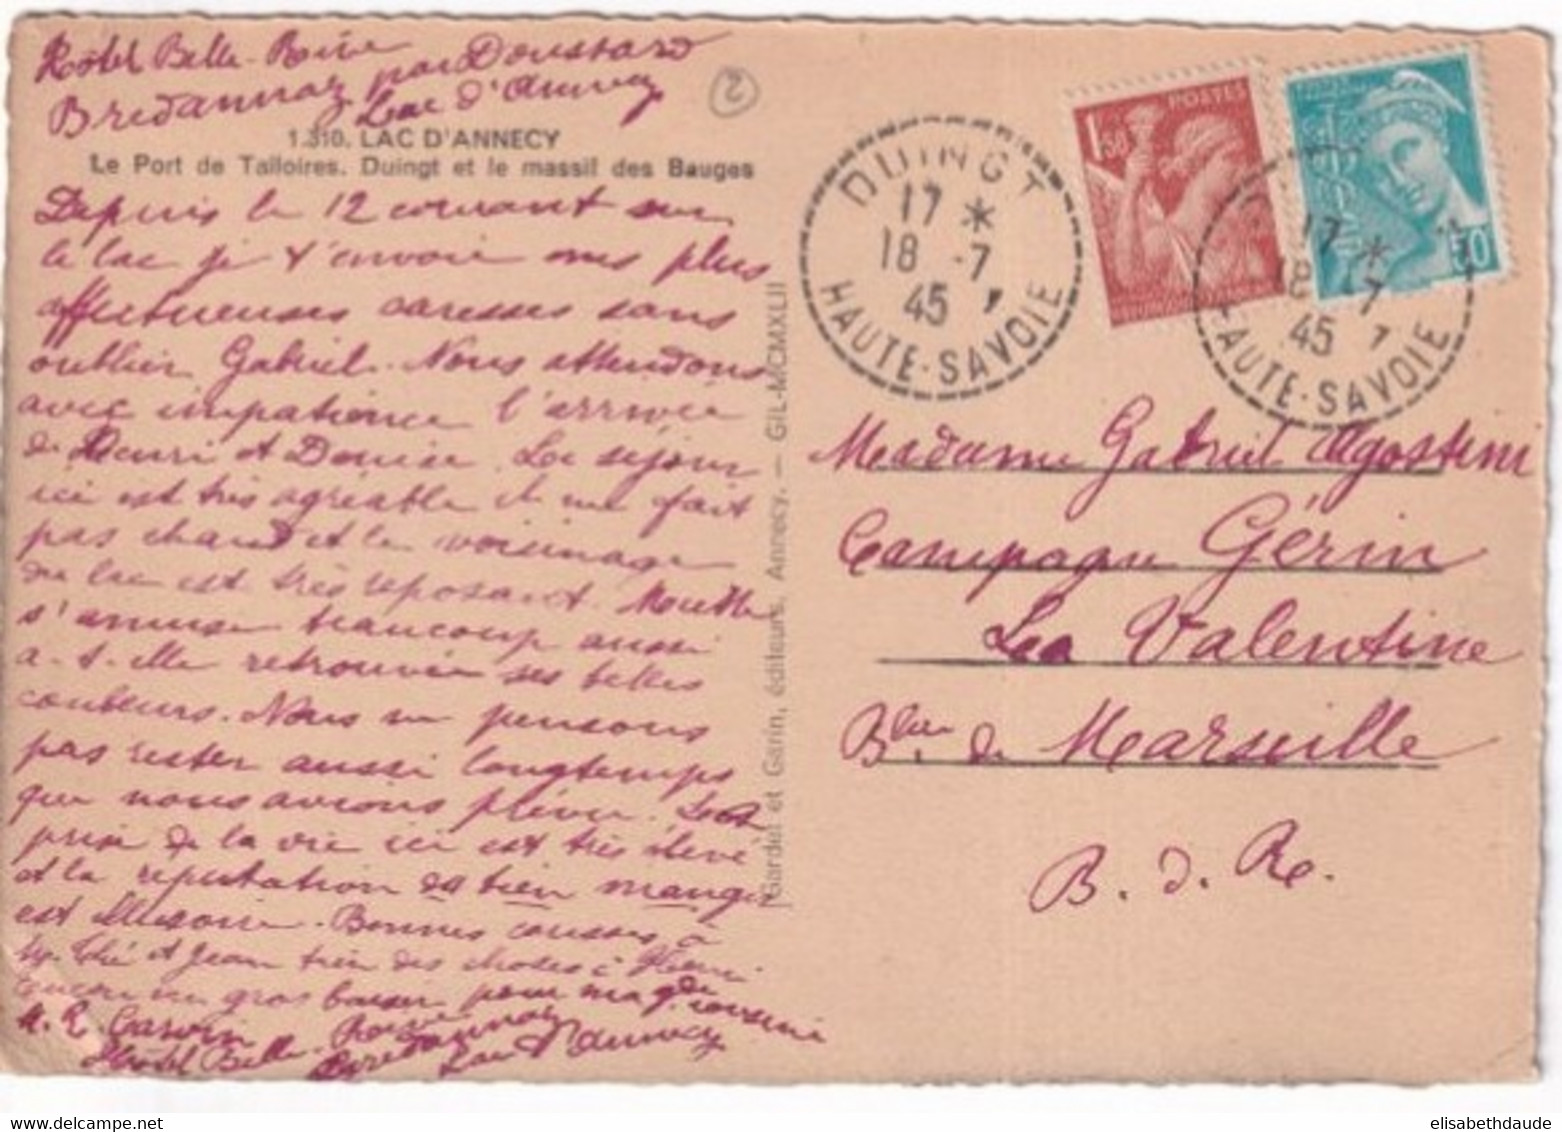 Hôtel Belle-Rive
Bredannaz par Doussard
Lac d'Annecy
2
1.310. LAC D'ANNECY
Le Port de Talloires. Duingt et le massif des Bauges
Depuis le 12 courant sur
le lac je t'envoie mes plus
affectueuses caresses sans
oublier Gabriel. Nous attendons
avec impatience l'arrivée
de Henri et Denise. Le séjour
ici est très agréable il ne fait
pas chaud et le voisinage
du lac est très reposant.
s'amuse beaucoup aussi
a-t-elle retrouvée ses belles
couleurs. Nous ne pensons
pas rester aussi longtemps
que nous avions prévu. Le
prix de la vie ici est très élevé
et la réputation de bien manger
est illusoire. Bonnes caresses à
et Jean bien des choses à Henri
un gros baiser pour
Hôtel Belle-Rive
Bredannaz
Lac d'Annecy
Gardet et Garin, éditeurs, Annecy. — GIL-MCMXLII
POSTES
1,50
50
DUINGT
17 *
18 -7
45
HAUTE-SAVOIE
17 *
18 -7
45
HAUTE-SAVOIE
Madame Gabriel Agostini
Campagne Gérin
La Valentine
Blieue de Marseille
B. d. R.
elisabethdaude